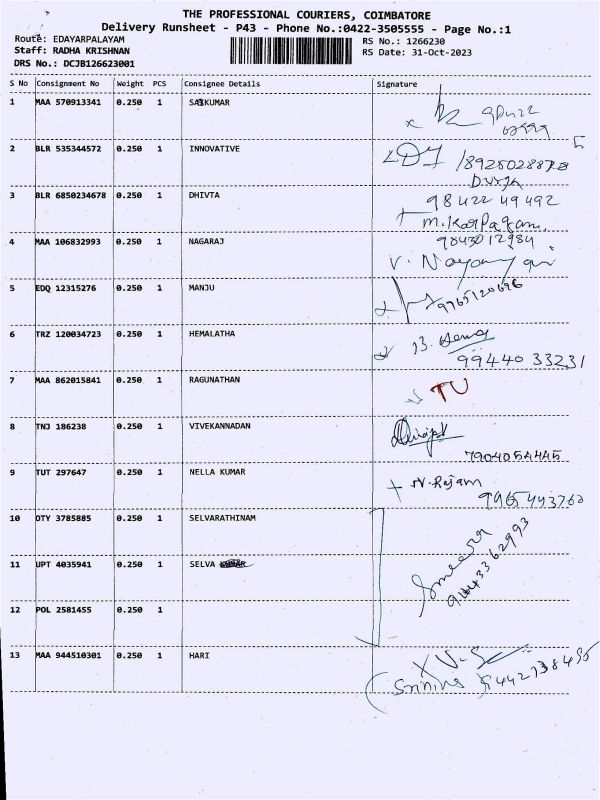 THE PROFESSIONAL COURIERS, COIMBATORE
Delivery Runsheet - P43 - Phone No.:0422-3505555 - Page No.:1
Route: EDAYARPALAYAM
RS No.: 1266230
Staff: RADHA KRISHNAN
RS Date: 31-Oct-2023
DRS No.: DCJB126623001
S No Consignment No Weight PCS Consignee Details Signature
1 MAA 570913341 0.250 1
2 BLR 535344572 0.250 1 INNOVATIVE
3 BLR 6850234678 0.250 1 DHIVTA
98422 49492
M.Karpagam
4 MAA 106832993 0.250 1 NAGARAJ
9843012984
5 EDQ 12315276 0.250 1 MANJU
9765120696
6 TRZ 120034723 0.250 1 HEMALATHA
99440 33231
7 MAA 862015841 0.250 1 RAGUNATHAN
TU
8 TNJ 186238 0.250 1 VIVEKANNADAN
7904054445
9 TUT 297647 0.250 1 NELLA KUMAR
N.Rajam
9965443760
10 OTY 3785885 0.250 1 SELVARATHINAM
11 UPT 4035941 0.250 1 SELVA
12 POL 2581455 0.250 1
13 MAA 944510301 0.250 1 HARI